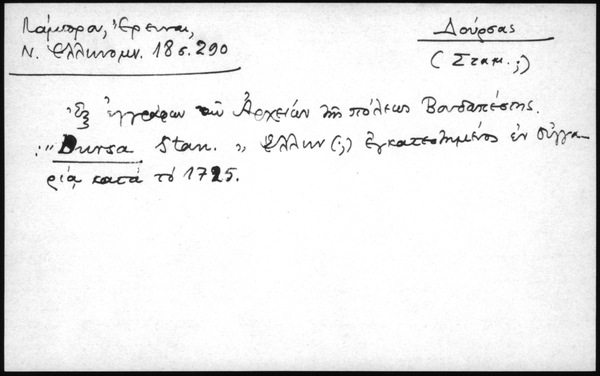 Λάμπρου, Ἔρευναι,
Ν. Ἑλληνομν. 18 σ. 290
Δούρσας
(Σταμ. ;)
Ἐξ ἐγγράφων τῶν Ἀρχείων τῆς πόλεως Βουδαπέστης.
: „Dursa Stan. „ Ἕλλην (;) ἐγκατεστημένος ἐν Οὑγγα-
ρίᾳ κατὰ τὸ 1725.